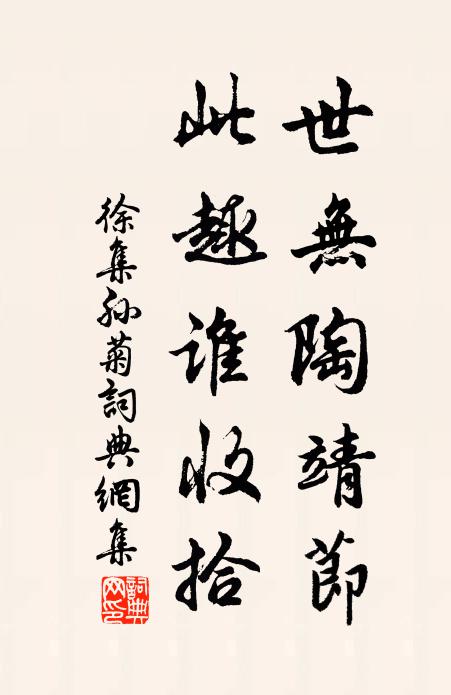 世無陶靖節
此趣誰收拾
徐集孙菊詞典網集
詞典網印